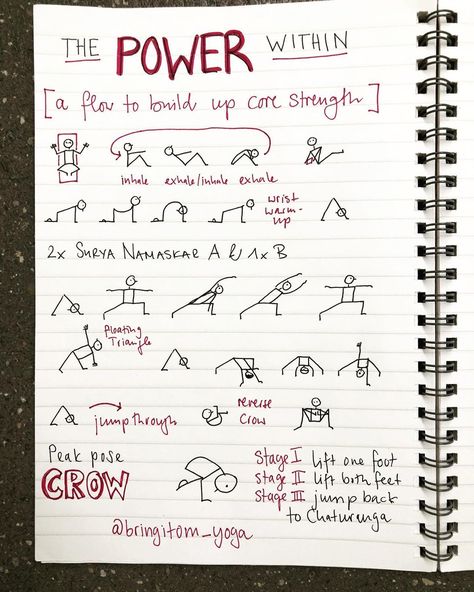 THE POWER WITHIN
[a flow to build up core strength]
inhale exhale/inhale exhale
wrist
warm-
up
2x SURYA NAMASKAR A & 1x B
floating
Triangle
jump through
reverse
Crow
Peak pose
CROW
Stage I lift one foot
Stage II lift both feet
Stage III jump back
to Chaturanga
@bringitom_yoga